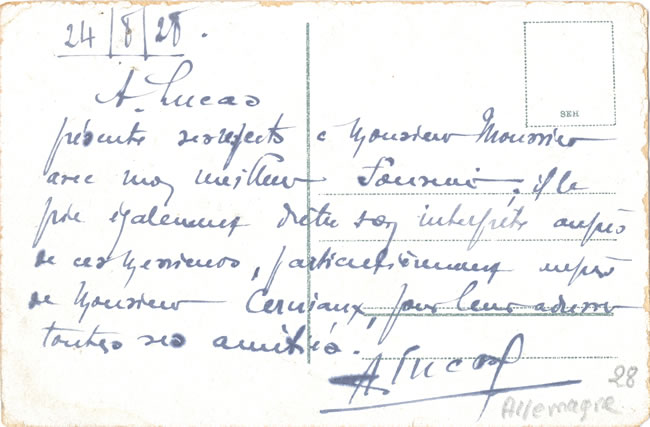 24/8/28.
SEH
A. Lucas
présente ses respects à Monsieur Mounier
avec mon meilleur souvenir, il le
prie également d'être son interprète auprès
de ces Messieurs, particulièrement auprès
de Monsieur pour leur adresser
toutes ses amitiés.
A. Lucas
28
Allemagne